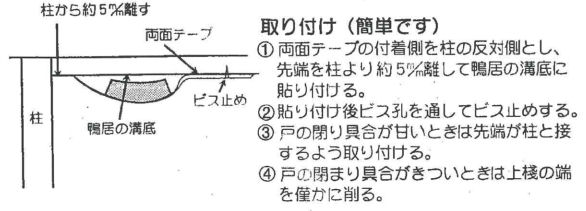 柱から約5㎜離す
両面テープ
ビス止め
柱
鴨居の溝底
取り付け(簡単です)
①両面テープの付着側を柱の反対側とし、
先端を柱より約5㎜離して鴨居の溝底に
貼り付ける。
②貼り付け後ビス孔を通してビス止めする。
③戸の閉り具合が甘いときは先端が柱と接
するよう取り付ける。
④戸の閉まり具合がきついときは上桟の端
を僅かに削る。